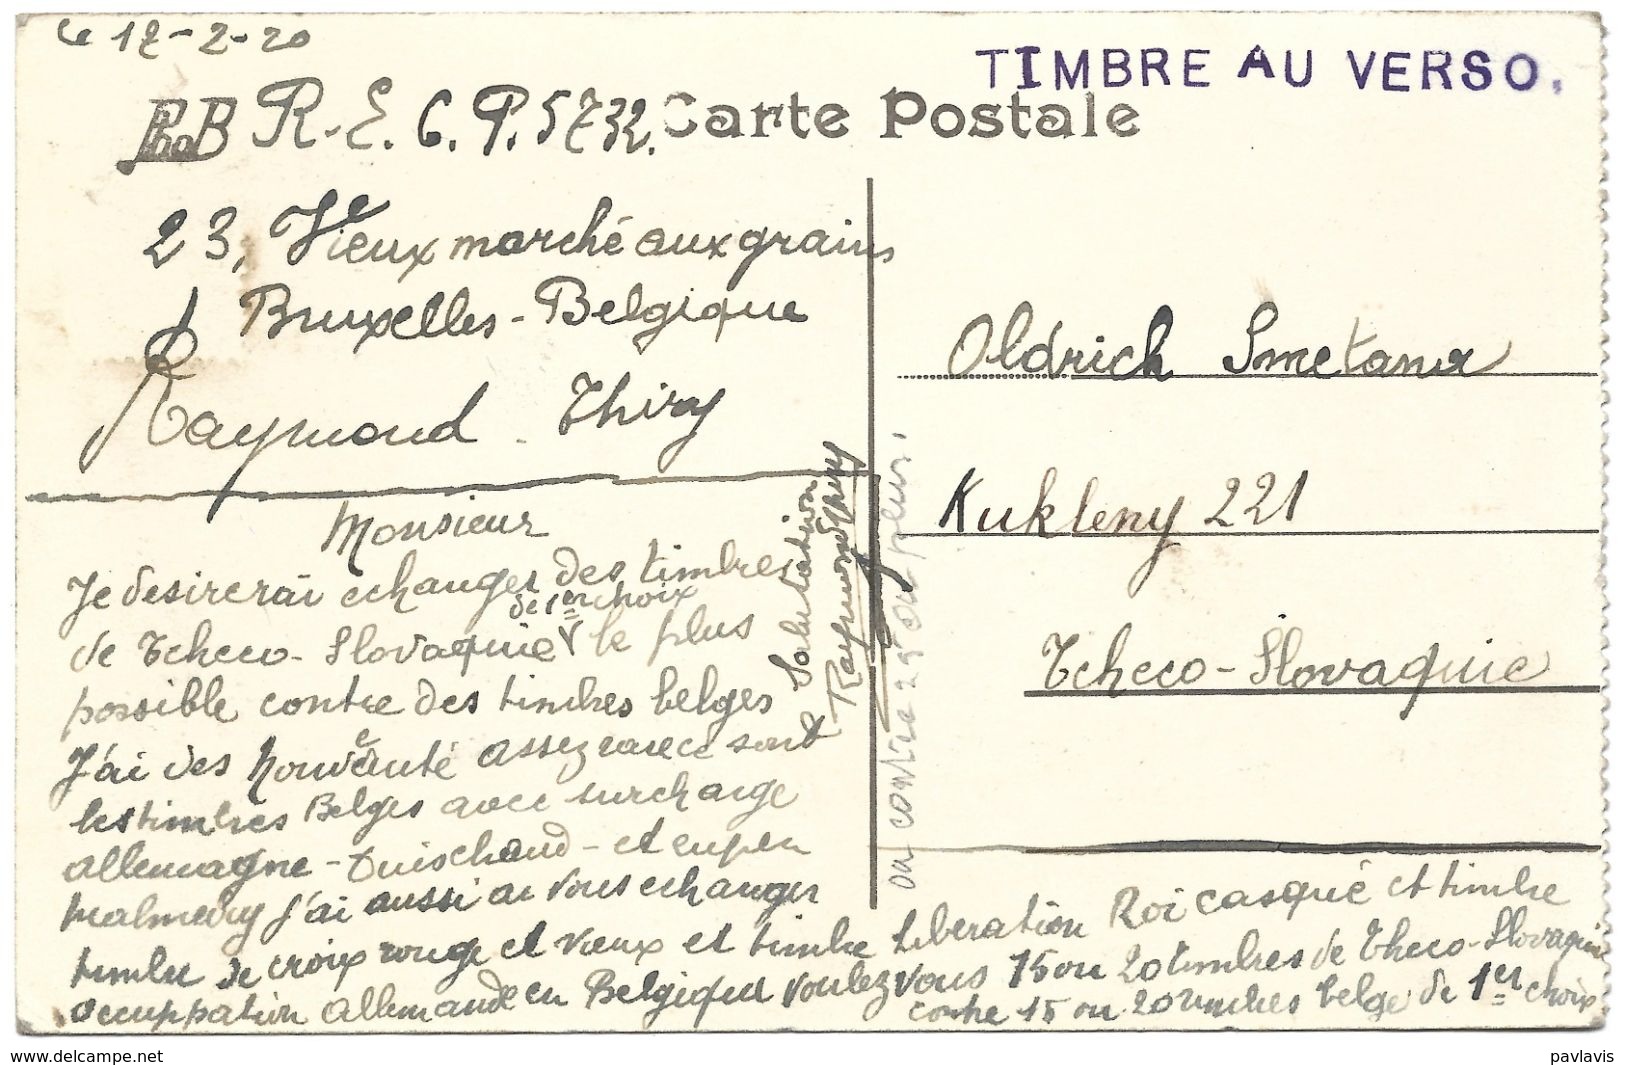 le 17-2-20
TIMBRE AU VERSO.
Carte Postale
R.E.C.P. 5732.
23, Vieux marché aux grains
Bruxelles-Belgique
Raymond Thiry
Oldrich Smetana
Kukleny 221
Tcheco-Slovaquie
Monsieur
Je desirerai echanger des timbres
de 1er choix
de Tcheco-Slovaquie V le plus
possible contre des timbres belges
J'ai des Nouveauté assez rare ce sont
les timbres Belges avec surcharge
allemagne - Duischand - et eupen
malmedy j'ai aussi a vous echanger
timbre de croix rouge et vieux et timbre liberation Roi casqué et timbre
occuppation allemande en Belgique voulez vous 15 ou 20 timbres de Theco-Slovaquie
contre 15 ou 20 timbres belge de 1er choix
ou contre 25 ou plus.
Salutation
Raymond Thiry
pavlavis